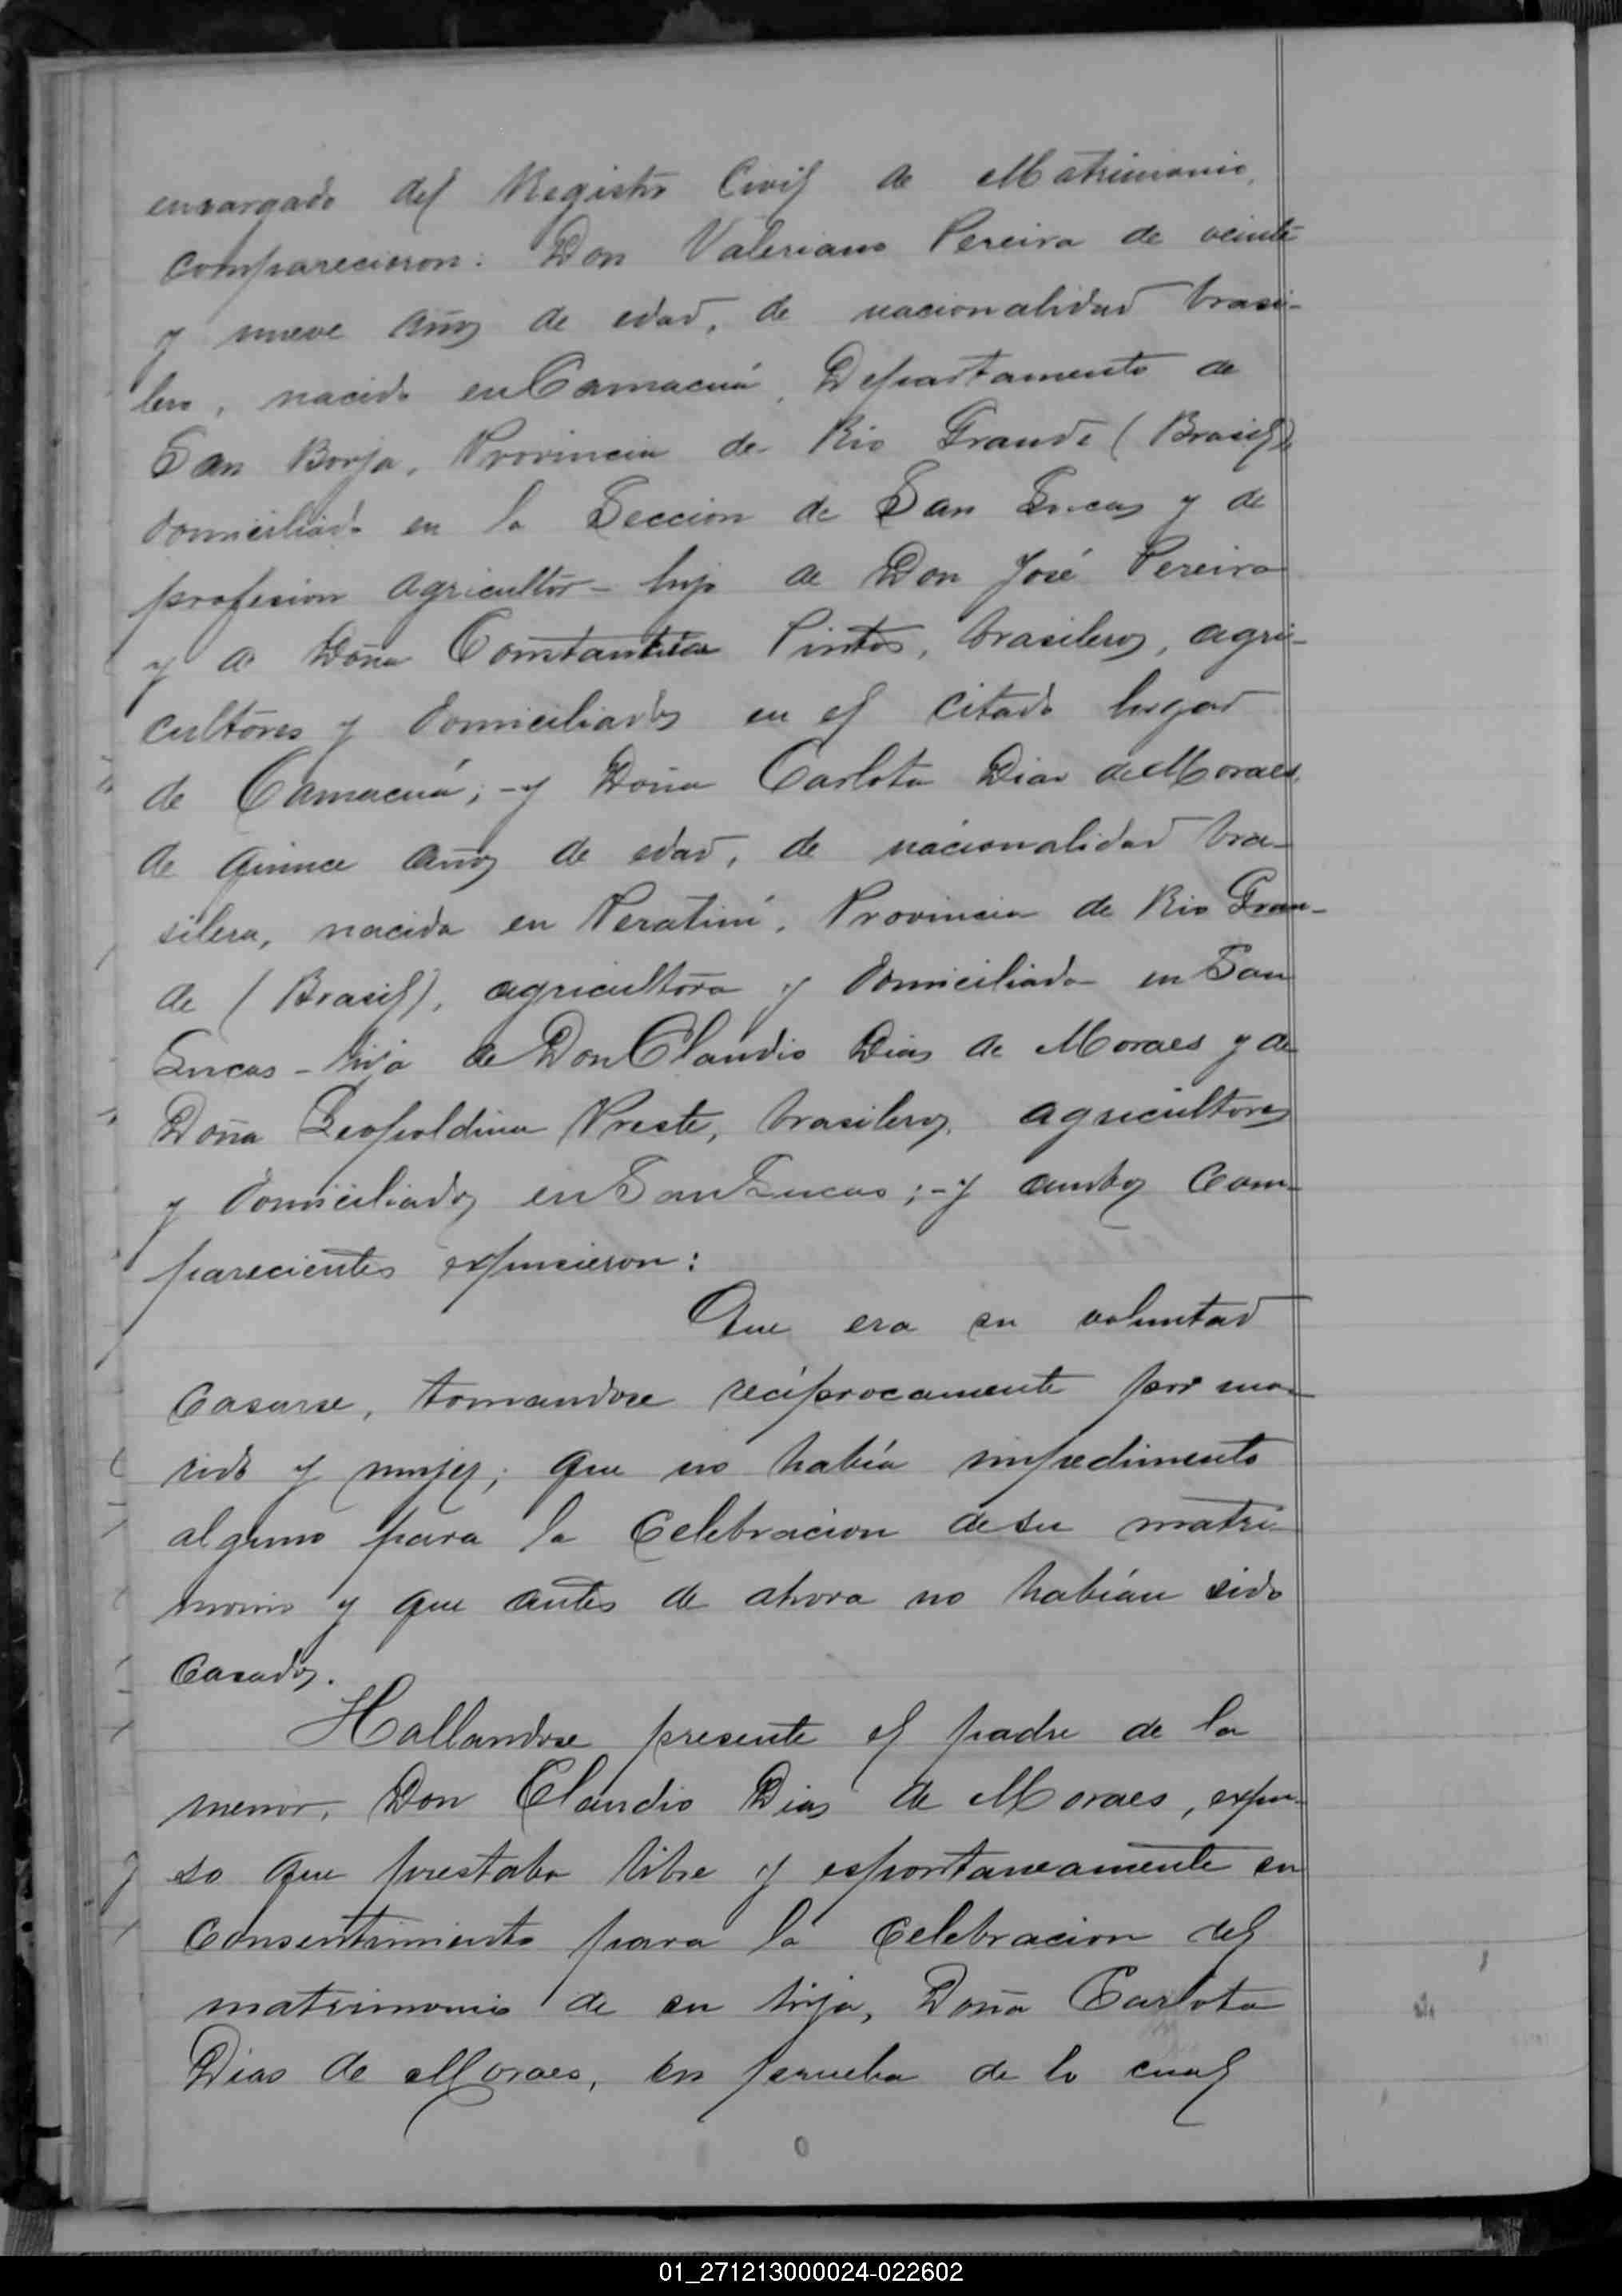 encargado del Registro Civil de Matrimonio,
comparecieron: Don Valeriano Pereira de veinte
y nueve años de edad, de nacionalidad brasi-
lero, nacido en Camacuá, Departamento de
San Borja, Provincia de Rio Grande (Brasil),
domiciliado en la Seccion de San Lucas y de
profesion agricultor - hijo de Don José Pereira
y de Doña Constantina Pintos, brasileros, agri-
cultores y domiciliados en el citado lugar
de Camacuá; - y Doña Carlota Dias de Moraes,
de quince años de edad, de nacionalidad bra-
silera, nacida en Peratiní, Provincia de Rio Gran-
de (Brasil), agricultora y domiciliada en San
Lucas - hija de Don Claudio Dias de Moraes y de
Doña Leopoldina Preste, brasileros, agricultores
y domiciliados en San Lucas; - y ambos com-
parecientes expusieron:
Que era su voluntad
casarse, tomandose reciprocamente por ma-
rido y mujer; que no había impedimento
alguno para la celebracion de su matri-
monio y que antes de ahora no habían sido
casados.
Hallandose presente el padre de la
menor, Don Claudio Dias de Moraes, expu-
so que prestaba libre y espontaneamente su
consentimiento para la celebracion del
matrimonio de su hija, Doña Carlota
Dias de Moraes, en prueba de lo cual
01_271213000024-022602